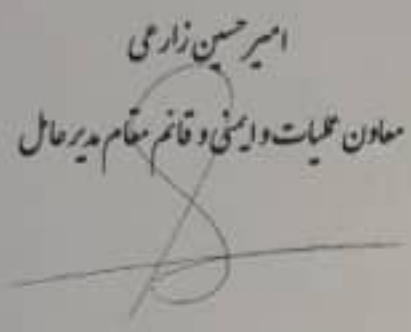 امیر حسین زارعی
معاون عملیات و ایمنی و قائم مقام مدیرعامل